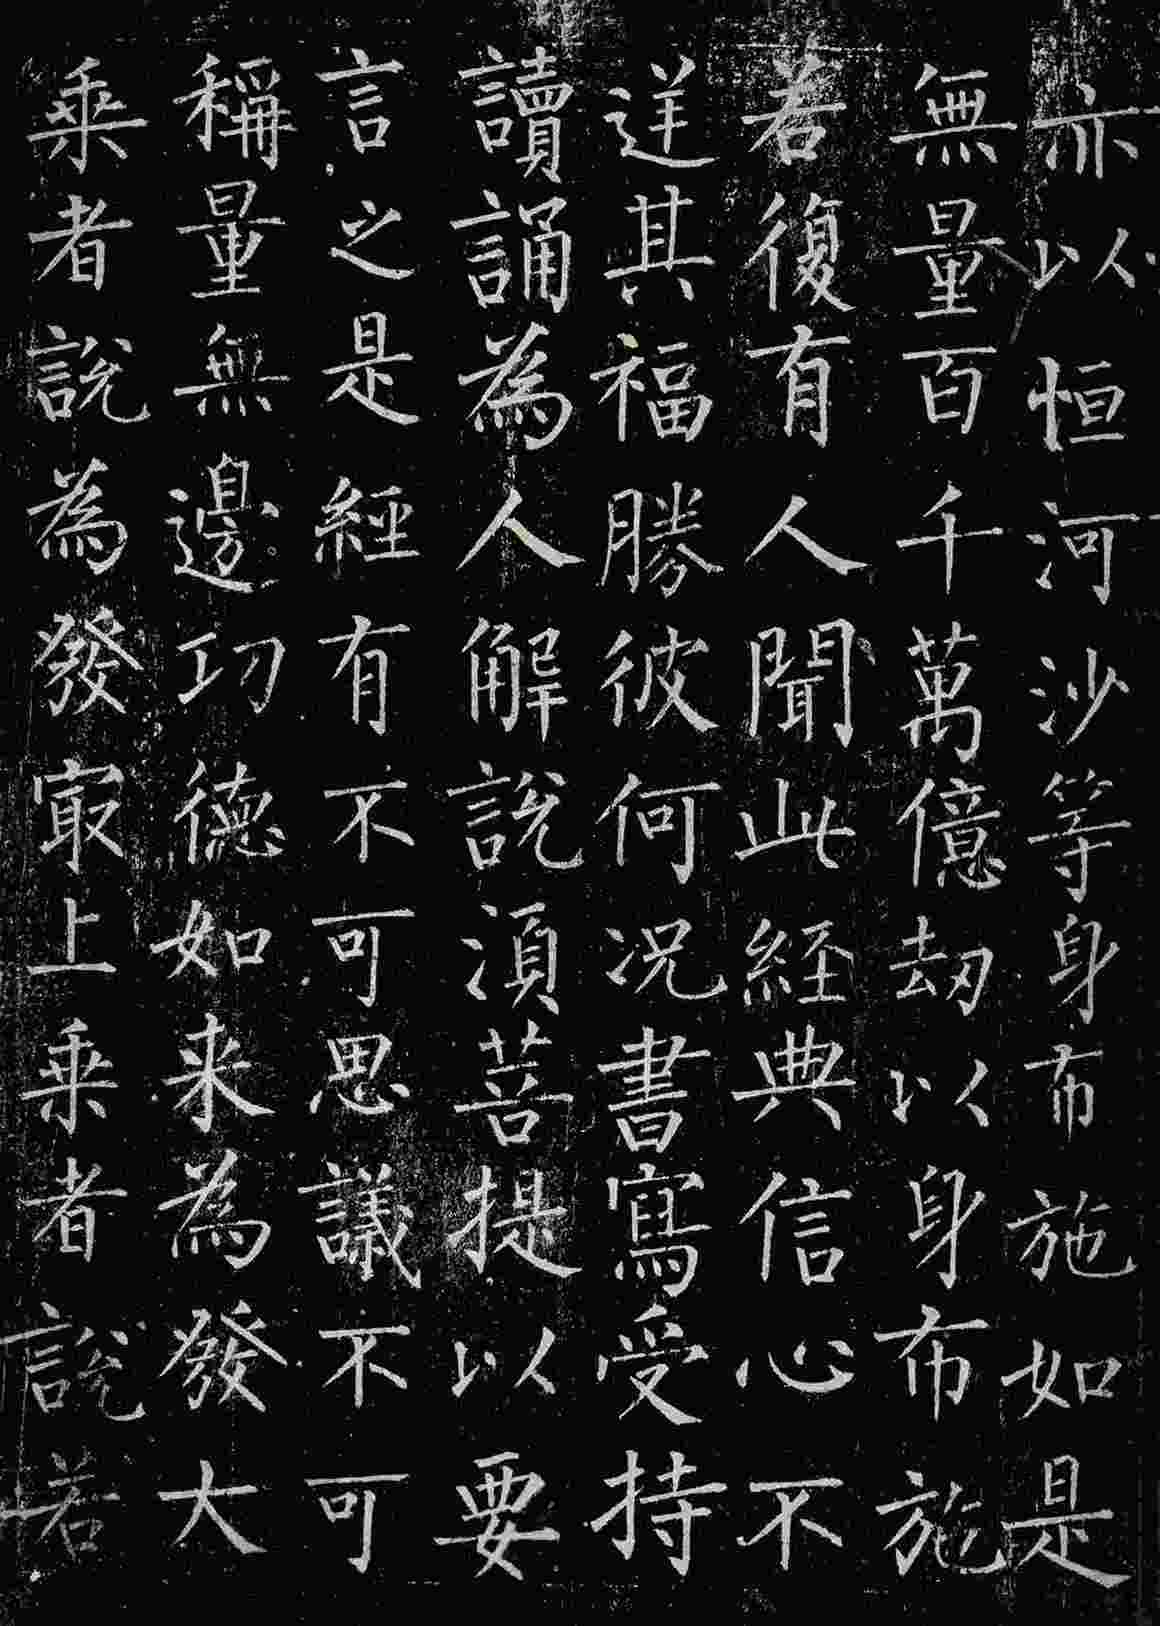 亦以恒河沙等身布施如是
無量百千萬億劫以身布施
若復有人聞此經典信心不
逆其福勝彼何況書寫受持
讀誦為人解說須菩提以要
言之是經有不可思議不可
稱量無邊功德如来為發大
乘者說為發冣上乘者說若